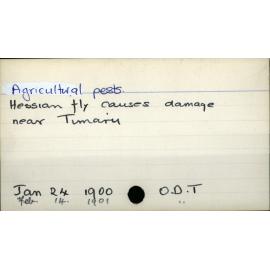 Agricultural pests.
Hessian fly causes damage
near Timaru
Jan 24 1900 O.D.T
Feb 14 1901 "